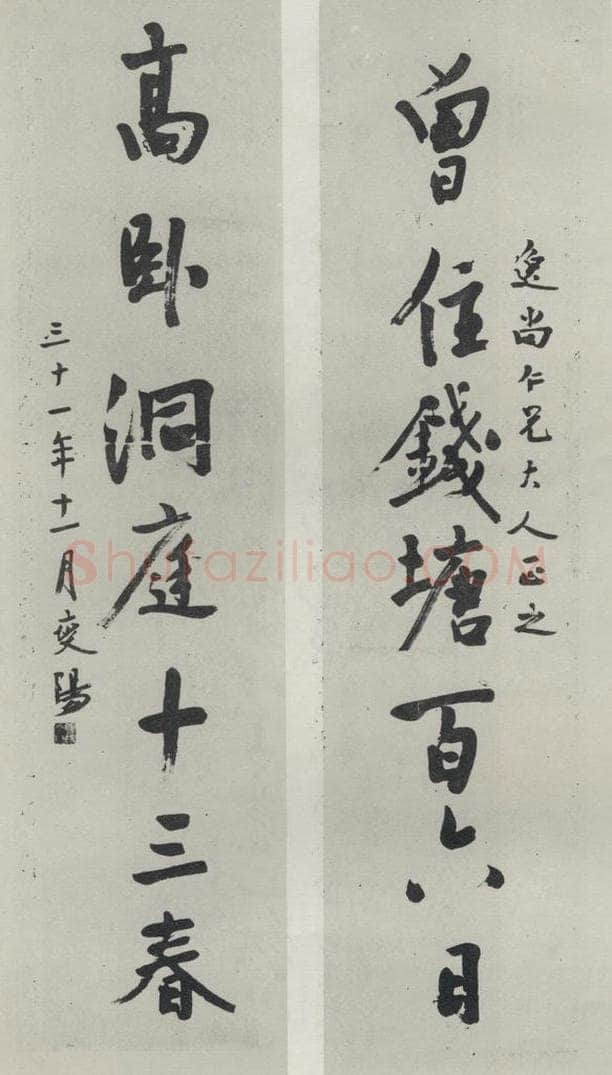 逸尚仁兄大人正之
曾住錢塘百六日
高臥洞庭十三春
三十一年十一月變陽
Shufaziliao.COM